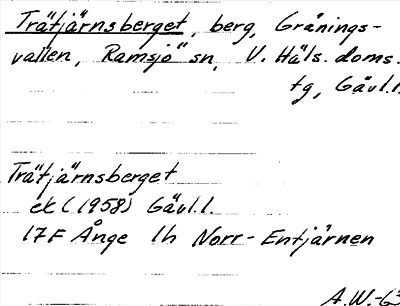 Trätjärnsberget, berg, Grånings-
vallen, Ramsjö sn, V. Häls. doms.
tg, Gävl.l.
Trätjärnsberget
ek (1958) Gävl.l.
17F Ånge 1h Norr-Entjärnen
A.W.-63